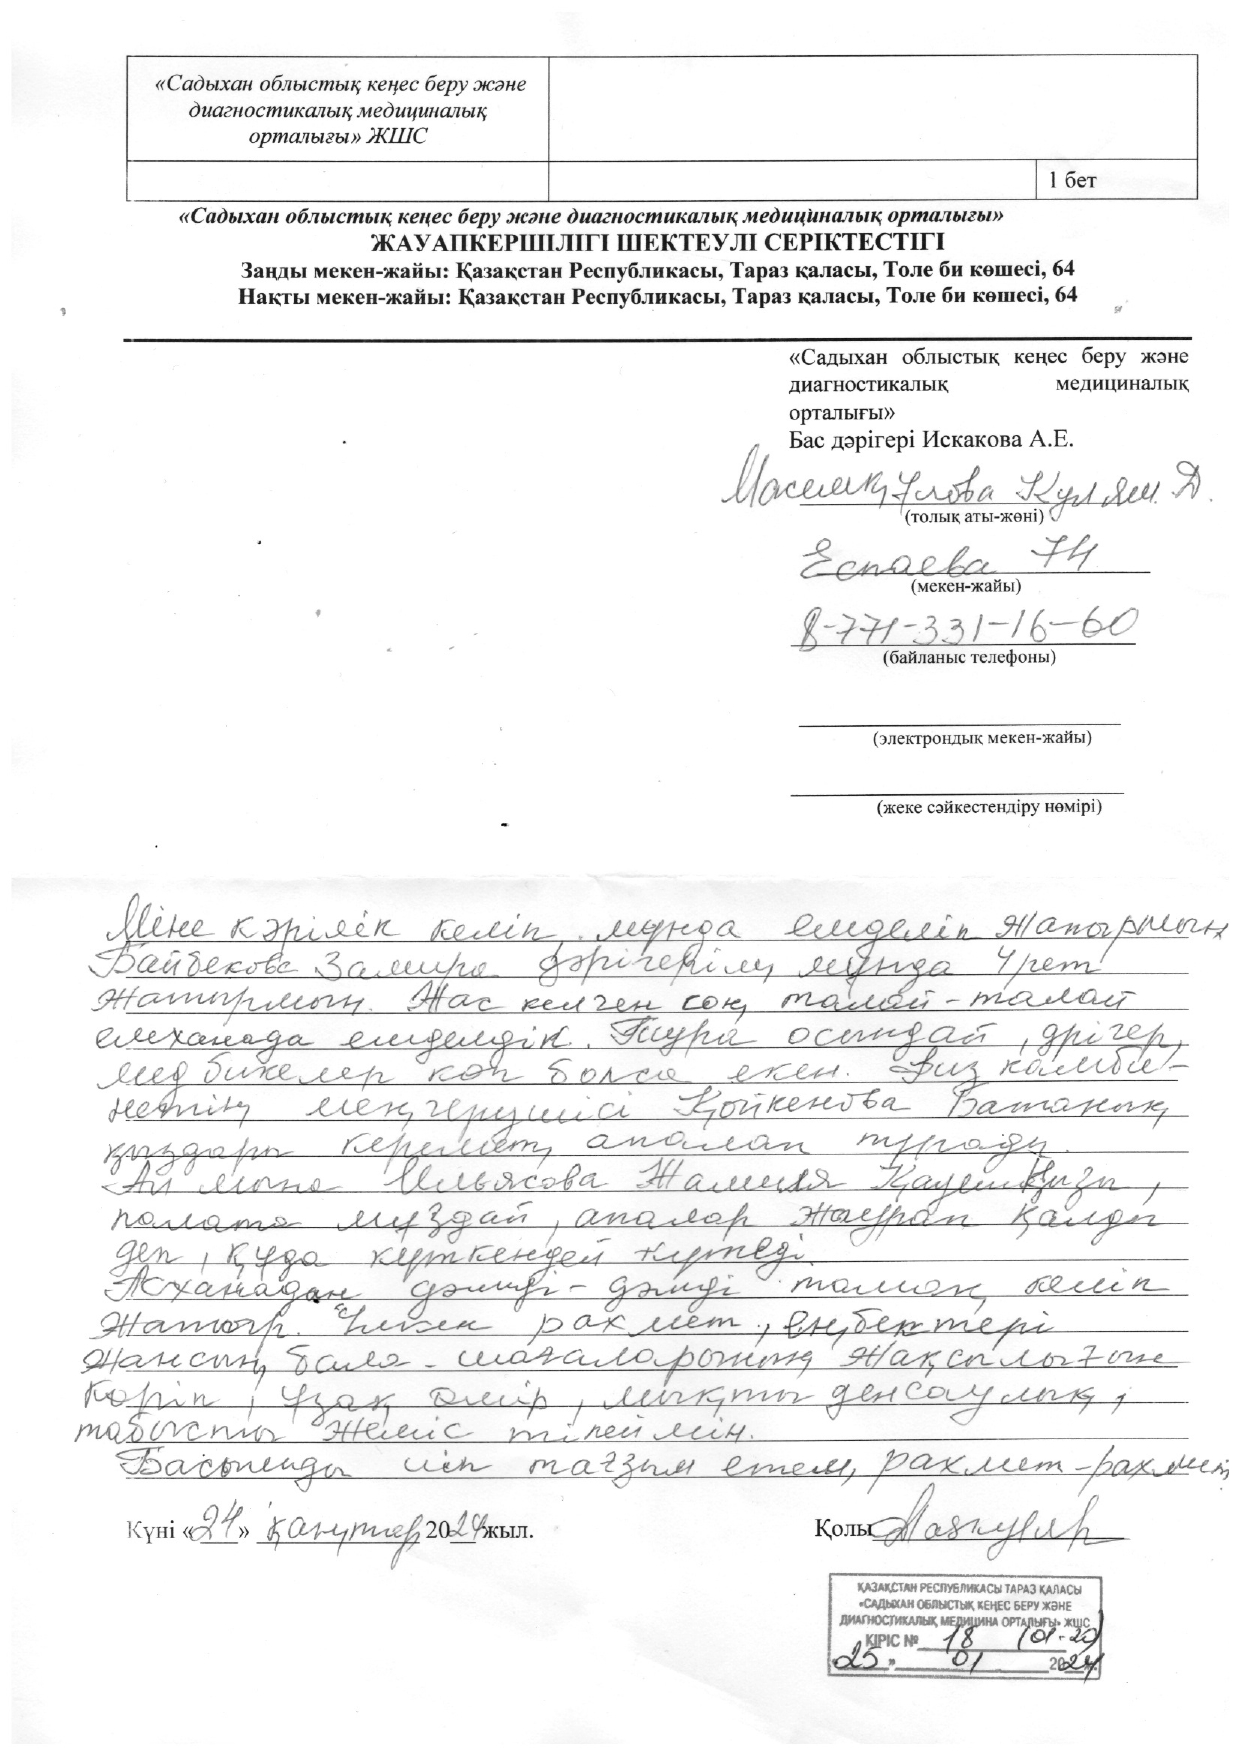 «Садыхан облыстық кеңес беру және
диагностикалық медициналық
орталығы» ЖШС
1 бет
«Садыхан облыстық кеңес беру және диагностикалық медициналық орталығы»
ЖАУАПКЕРШІЛІГІ ШЕКТЕУЛІ СЕРІКТЕСТІГІ
Заңды мекен-жайы: Қазақстан Республикасы, Тараз қаласы, Толе би көшесі, 64
Нақты мекен-жайы: Қазақстан Республикасы, Тараз қаласы, Толе би көшесі, 64
«Садыхан облыстық кеңес беру және
диагностикалық медициналық
орталығы»
Бас дәрігері Искакова А.Е.
Масимқұлова Кулям. Д.
(толық аты-жөні)
Еспаева 74
(мекен-жайы)
8-771-331-16-60
(байланыс телефоны)
(электрондық мекен-жайы)
(жеке сәйкестендіру нөмірі)
Міне кәрілік келіп, мұнда емделіп жатырмын
Байбекова Замира дәрігерім, мұнда 4 рет
жатырмын. Жас келген соң талай-талай
емханада емделдік. Тура осындай, дрігер,
мед бикелер көп болса екен. Физ камби-
нетің меңгерушісі Қойкенова Батаның
қыздары керемет, апалап тұрады.
Ал мына Ильясова Жамиля Қауенқызы,
палата мұздай, апалар жаурап қалды
деп, құда күткендей күтеді.
Асханадан дәмді-дәмді тамақ келіп
жатыр. Үлкен рахмет, еңбектері
жансын, бала-шағаларының жақсылығын
көріп, ұзақ өмір, мықты денсаулық,
табысты жеміс тілеймін.
Басымды иіп тағзым етем, рахмет-рахмет
Күні «24» қаңтар 2024 жыл.
Қолы
ҚАЗАҚСТАН РЕСПУБЛИКАСЫ ТАРАЗ ҚАЛАСЫ
«САДЫХАН ОБЛЫСТЫҚ КЕҢЕС БЕРУ ЖӘНЕ
ДИАГНОСТИКАЛЫҚ МЕДИЦИНА ОРТАЛЫҒЫ» ЖШС
КІРІС № 18 (01-20)
25 » 01 2024